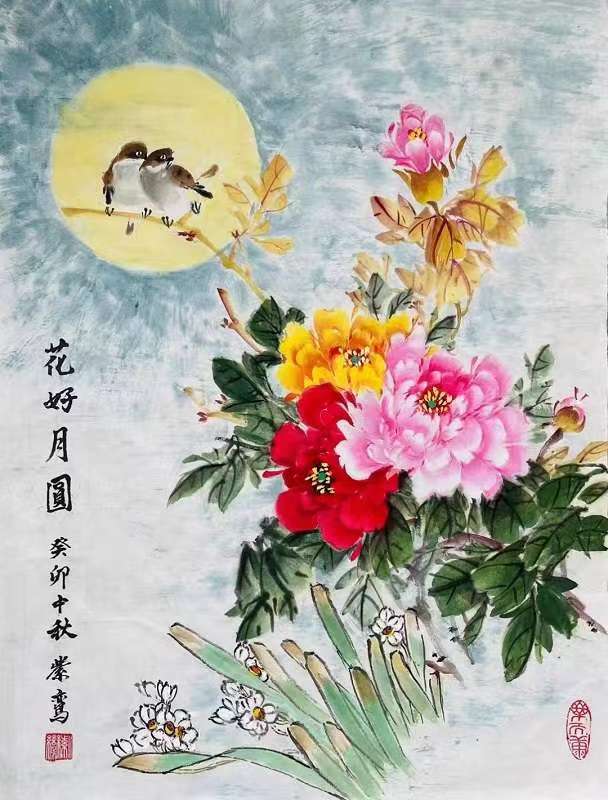 花好月圓
癸卯中秋